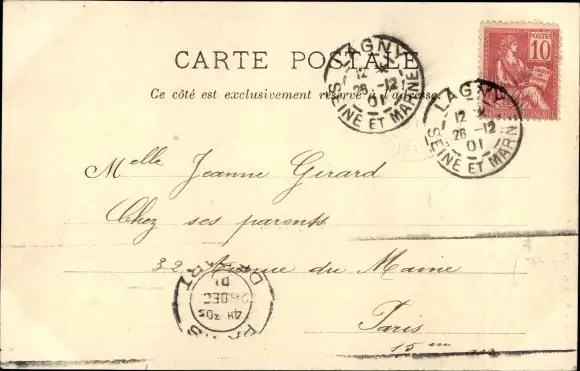 CARTE POSTALE
Ce côté est exclusivement réservé à l'adresse
POSTES
10
LAGNY
12
26 -12
01
SEINE ET MARNE
LAGNY
12
26 -12
01
SEINE ET MARNE
Melle Jeanne Girard
Chez ses parents
32 Avenue du Maine
Paris
15em arr
PARIS
DEPART
DEC
01